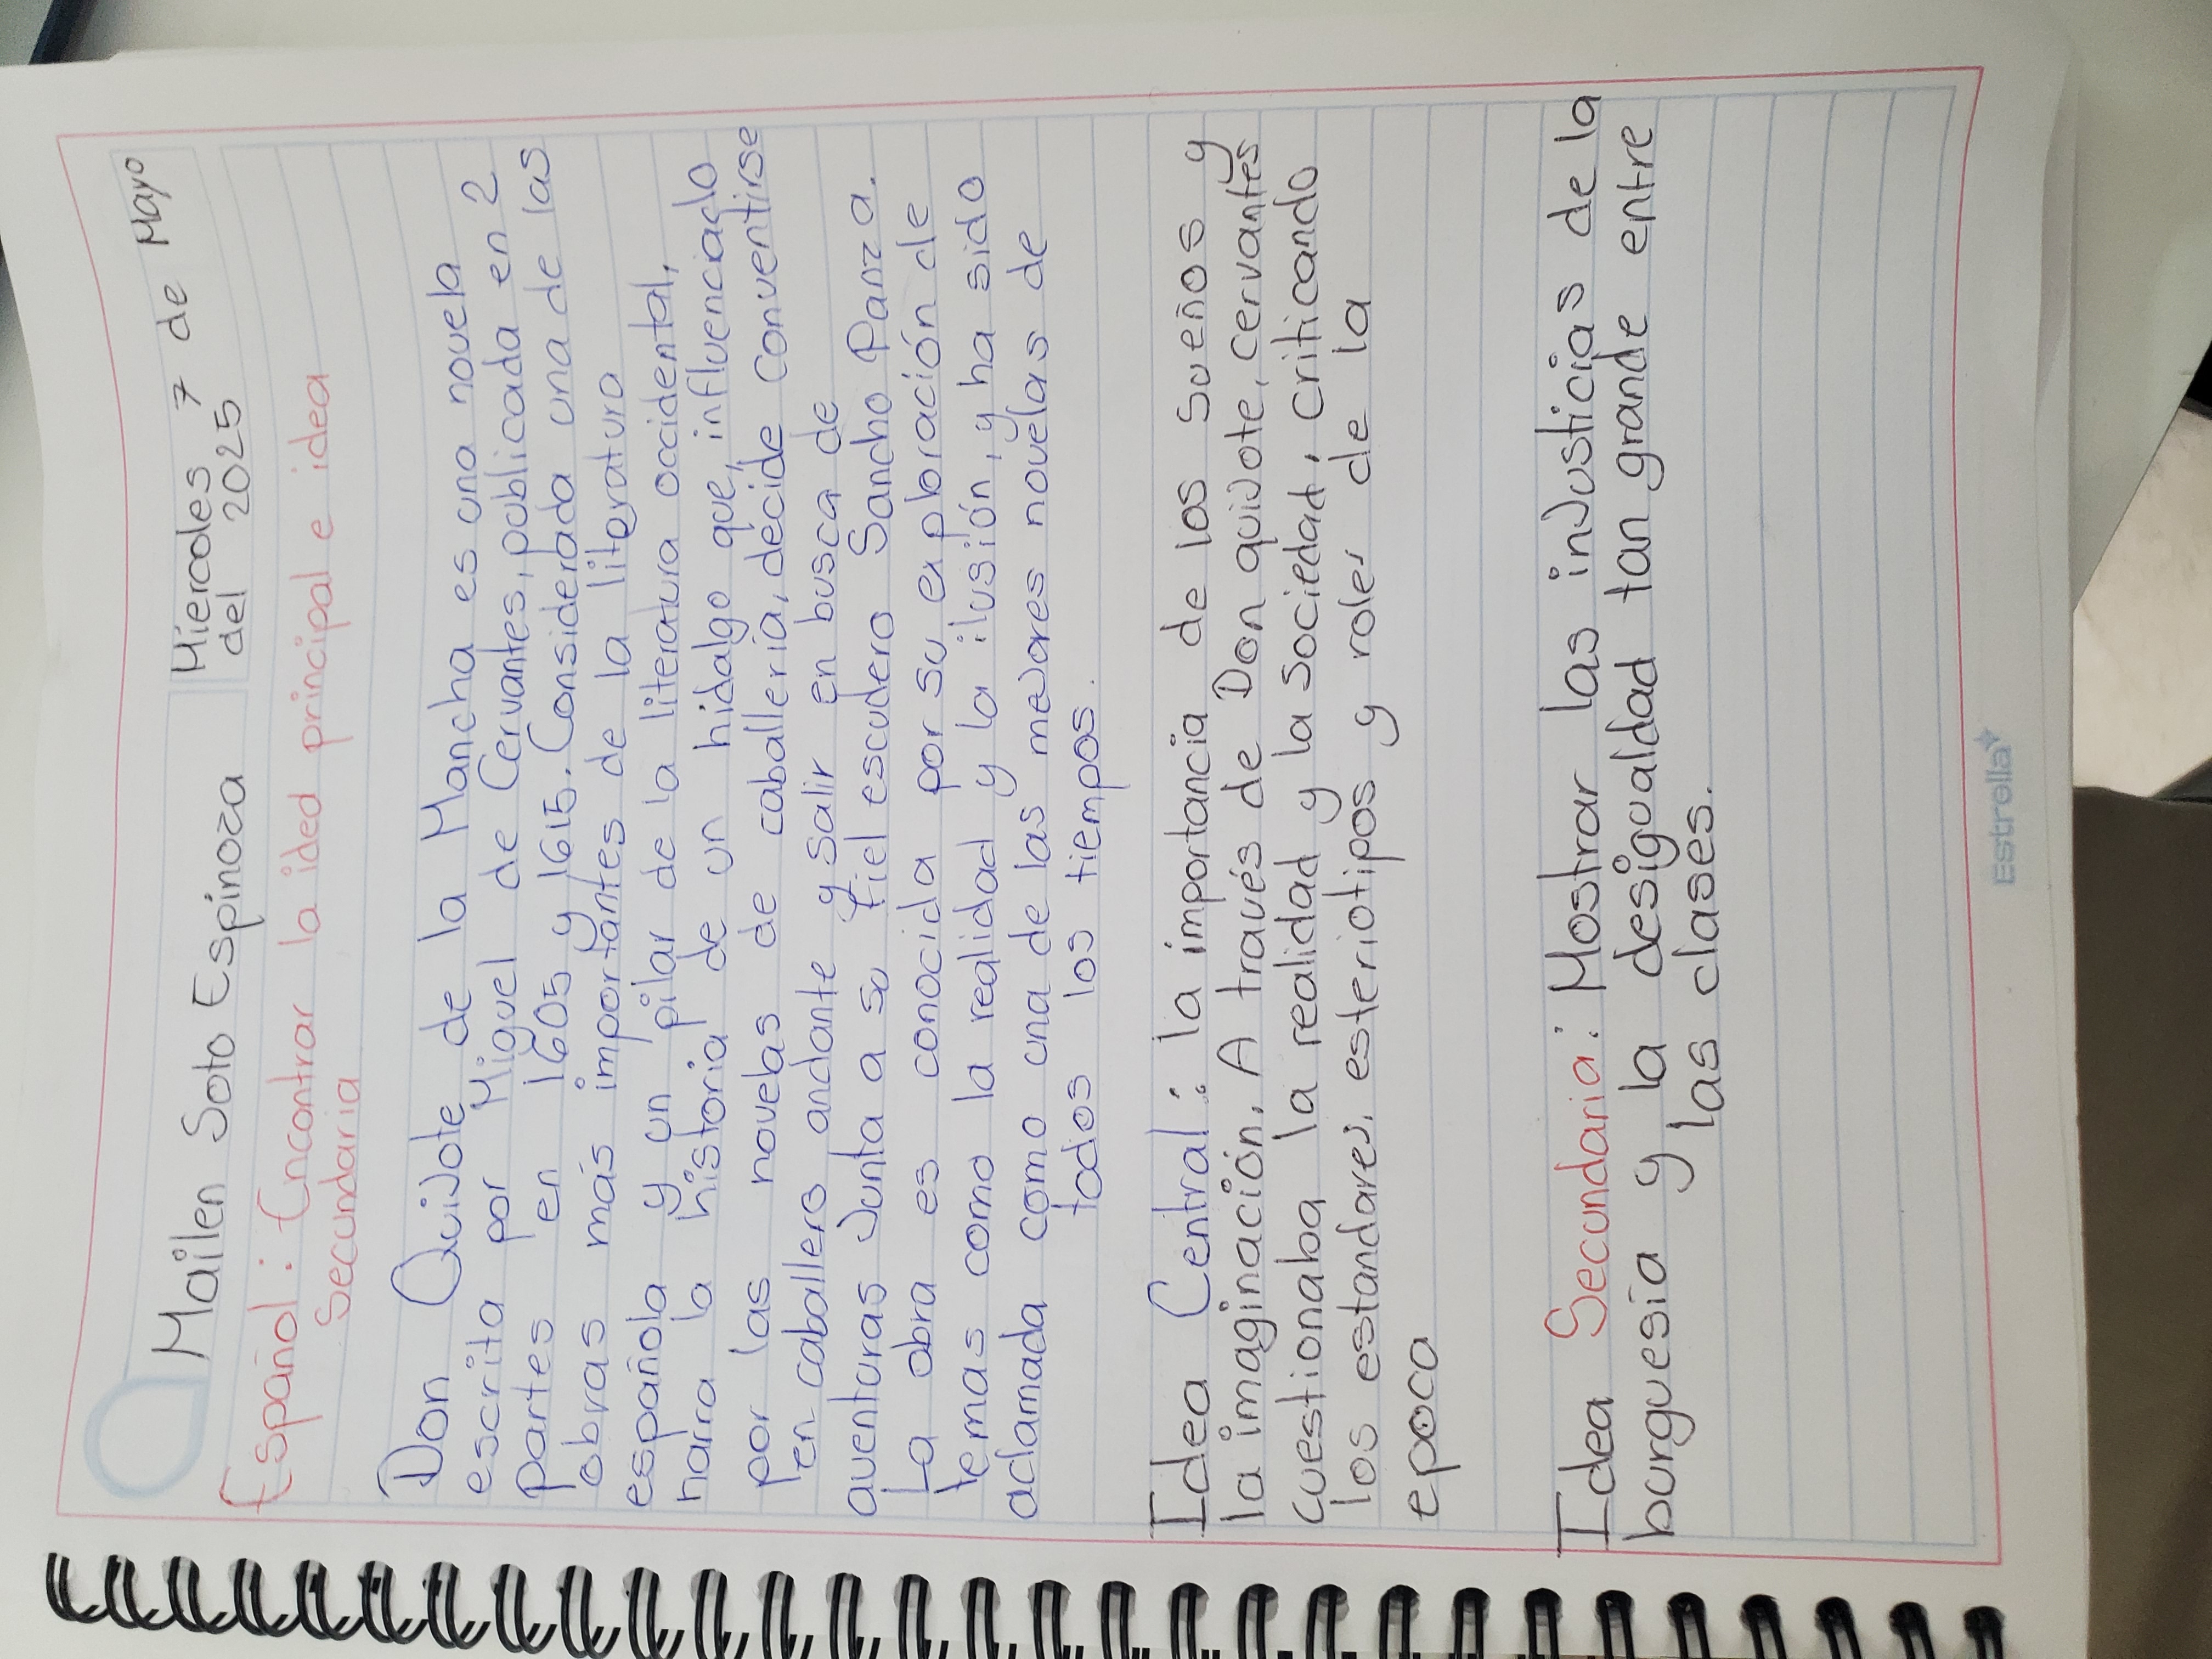 Mailen Soto Espinoza
Miercoles 7 de Mayo
del 2025
Español: Encontrar la ided principal e idea
Secundaria
Don Quijote de la Mancha es una novela
escrita por Miguel de Cervantes, publicada en 2
partes en 1605 y 1615. Considerada una de las
obras más importantes de la literatura
española y un pilar de la literatura occidental,
narra la historia de un hidalgo que, influenciado
por las novelas de caballería, decide conventirse
en caballero andante y salir en busca de
aventuras Junta a su fiel escudero Sancho Panza.
La obra es conocida por su exploración de
temas como la realidad y la ilusión, y ha sido
aclamada como una de las mejores novelas de
todos los tiempos.
Idea Central: la importancia de los sueños y
la imaginación. A través de Don quijote, cervantes
cuestionaba la realidad y la sociedad, criticando
los estandares, esteriotipos y roles de la
epoca
Idea Secundaria: Mostrar las injusticias de la
burguesía y la desigualdad tan grande entre
las clases.
Estrella